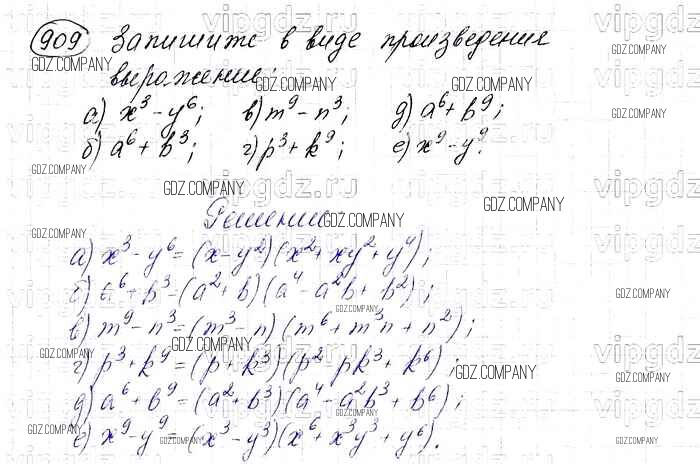 909 Запишите в виде произведения
выражение:
а) x³ - y⁶; в) m⁹ - n³; д) a⁶ + b⁹;
б) a⁶ + b³; г) p³ + k⁹; е) x⁹ - y⁹.
Решение
а) x³ - y⁶ = (x - y²)(x² + xy² + y⁴);
б) a⁶ + b³ = (a² + b)(a⁴ - a²b + b²);
в) m⁹ - n³ = (m³ - n)(m⁶ + m³n + n²);
г) p³ + k⁹ = (p + k³)(p² - pk³ + k⁶);
д) a⁶ + b⁹ = (a² + b³)(a⁴ - a²b³ + b⁶);
е) x⁹ - y⁹ = (x³ - y³)(x⁶ + x³y³ + y⁶).
vipgdz.ru
GDZ.COMPANY